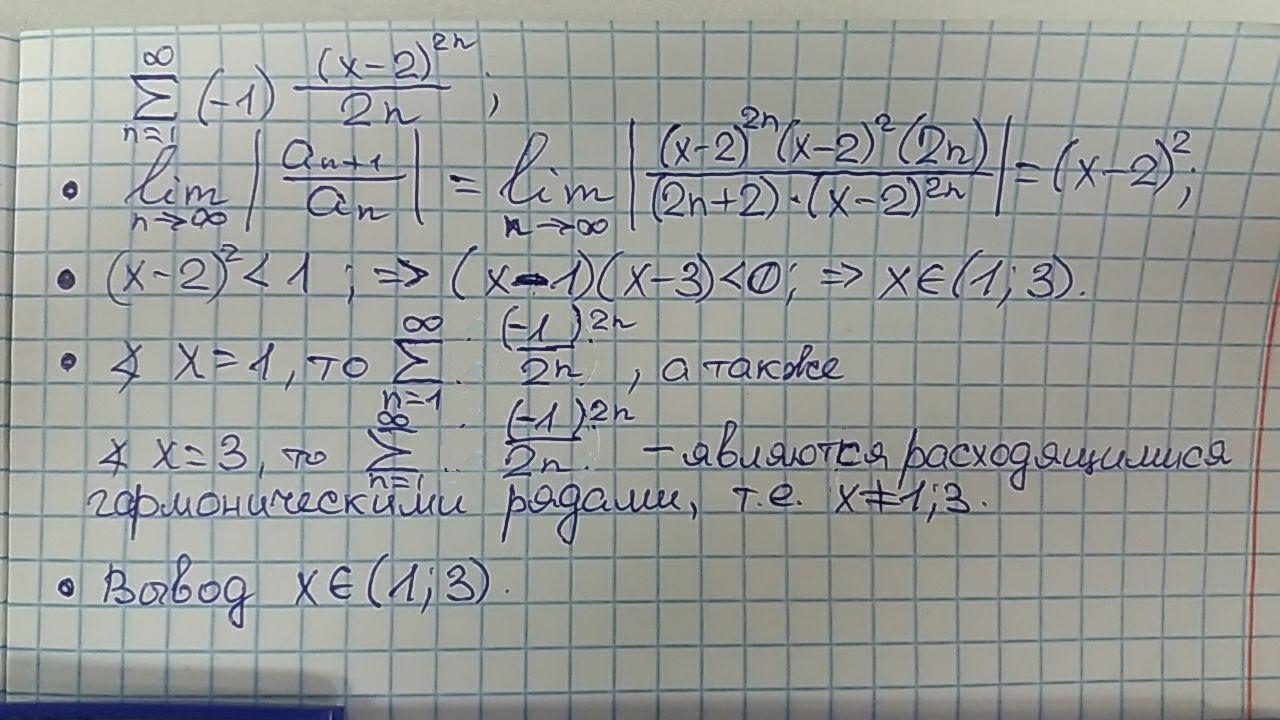 ∞
∑ (-1) (x-2)^{2n} / 2n ;
n=1
• lim_{n→∞} |a_{n+1} / a_n| = lim_{n→∞} |(x-2)^{2n}(x-2)^2(2n) / (2n+2)·(x-2)^{2n}| = (x-2)^2;
• (x-2)^2 < 1 ; => (x-1)(x-3)<0; => x∈(1; 3).
• ∢ x=1, то ∑_{n=1}^{∞} (-1)^{2n} / 2n , а также
∢ x=3, то ∑_{n=1}^{∞} (-1)^{2n} / 2n - являются расходящимися
гармоническими рядами, т.е. x≠1;3.
• Вывод x∈(1; 3).